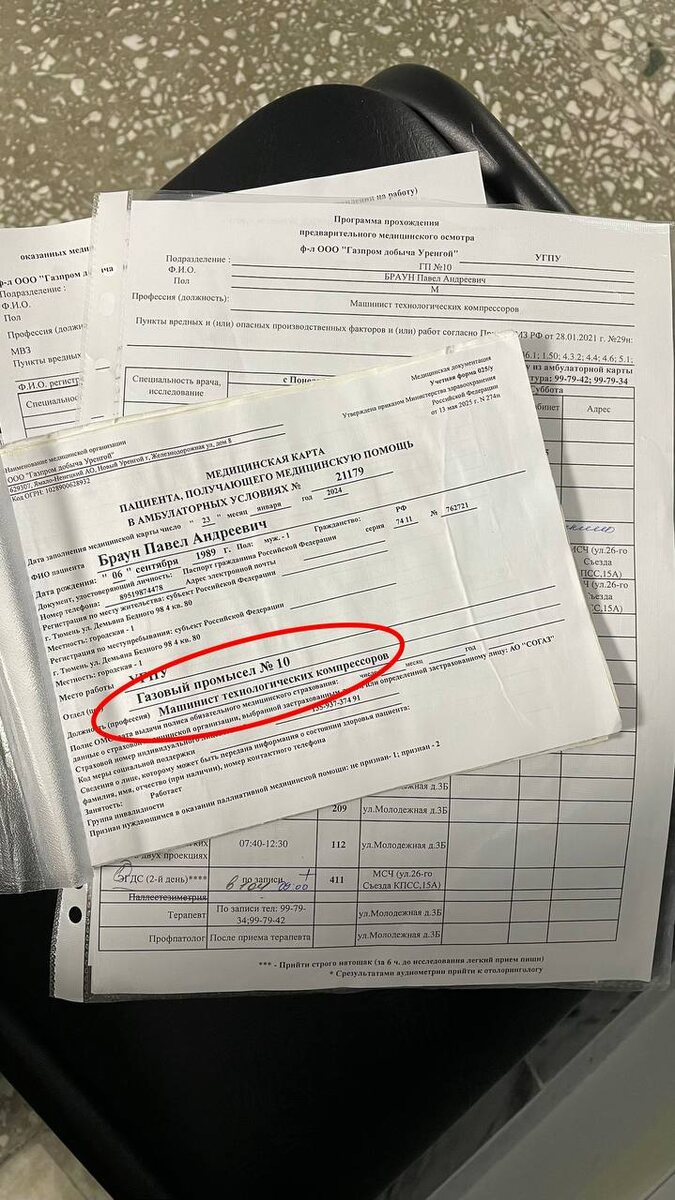 ении на работу)
Программа прохождения
предварительного медицинского осмотра
ф-л ООО "Газпром добыча Уренгой"
УГПУ
Подразделение :
ГП №10
Ф.И.О.
БРАУН Павел Андреевич
Пол
М
Профессия (должность):
Машинист технологических компрессоров
Пункты вредных и (или) опасных производственных факторов и (или) работ согласно
МЗ РФ от 28.01.2021 г. №29н:
6.1; 1.50; 4.3.2; 4.4; 4.6; 5.1;
у из амбулаторной карты
тура: 99-79-42; 99-79-34
Специальность врача,
исследование
Суббота
бинет
Адрес
МСЧ (ул.26-го
Съезда
КПСС,15А)
оказанных меди
ф-л ООО "Газпром добыча
Подразделение :
Ф.И.О.
Пол
Профессия (должн
МВЗ
Пункты вредных
Ф.И.О. регист
Специальнос
Медицинская документация
Учетная форма 025/у
Утверждена приказом Министерства здравоохранения
Российской Федерации
от 13 мая 2025 г. N 274н
Наименование медицинской организации
ООО "Газпром добыча Уренгой"
629307, Ямало-Ненецкий АО, Новый Уренгой г, Железнодорожная ул, дом 8
Код ОГРН: 1028900628932
МЕДИЦИНСКАЯ КАРТА
ПАЦИЕНТА, ПОЛУЧАЮЩЕГО МЕДИЦИНСКУЮ ПОМОЩЬ
В АМБУЛАТОРНЫХ УСЛОВИЯХ № 21179
Дата заполнения медицинской карты число " 23 " месяц января год 2024
ФИО пациента Браун Павел Андреевич
Дата рождения: " 06 " сентября 1989 г. Пол: муж. - 1 Гражданство: РФ
Документ, удостоверяющий личность: Паспорт гражданина Российской Федерации серия 74 11 № 762721
Номер телефона: 89519874478 Адрес электронной почты
Регистрация по месту жительства: субъект Российской Федерации
г. Тюмень ул. Демьяна Бедного 98 4 кв. 80
Местность: городская - 1
Регистрация по месту пребывания: субъект Российской Федерации
г. Тюмень ул. Демьяна Бедного 98 4 кв. 80
Местность: городская - 1
Место работы УГПУ
Отдел Газовый промысел № 10
Должность (профессия) Машинист технологических компрессоров
Полис ОМС дата выдачи полиса обязательного медицинского страхования: число месяц год
данные о страховой медицинской организации, выбранной застрахованным или определенной застрахованному лицу: АО "СОГАЗ"
Страховой номер индивидуального
Код меры социальной поддержки
Сведения о лице, которому может быть передана информация о состоянии здоровья пациента:
фамилия, имя, отчество (при наличии), номер контактного телефона
Занятость: Работает
Группа инвалидности
Признан нуждающимся в оказании паллиативной медицинской помощи: не признан- 1; признан - 2
209
ул.Молодежная д.3Б
двух проекциях
07:40-12:30
112
ул.Молодежная д.3Б
ЭГДС (2-й день)****
по записи
09.00
411
МСЧ (ул.26-го
Съезда КПСС,15А)
Паллестезиметрия
Терапевт
По записи тел: 99-79-
34;99-79-42
ул.Молодежная д.3Б
Профпатолог
После приема терапевта
ул.Молодежная д.3Б
*** - Прийти строго натощак (за 6 ч. до исследования легкий прием пищи)
* Срезультатами аудиометрии прийти к отоларингологу